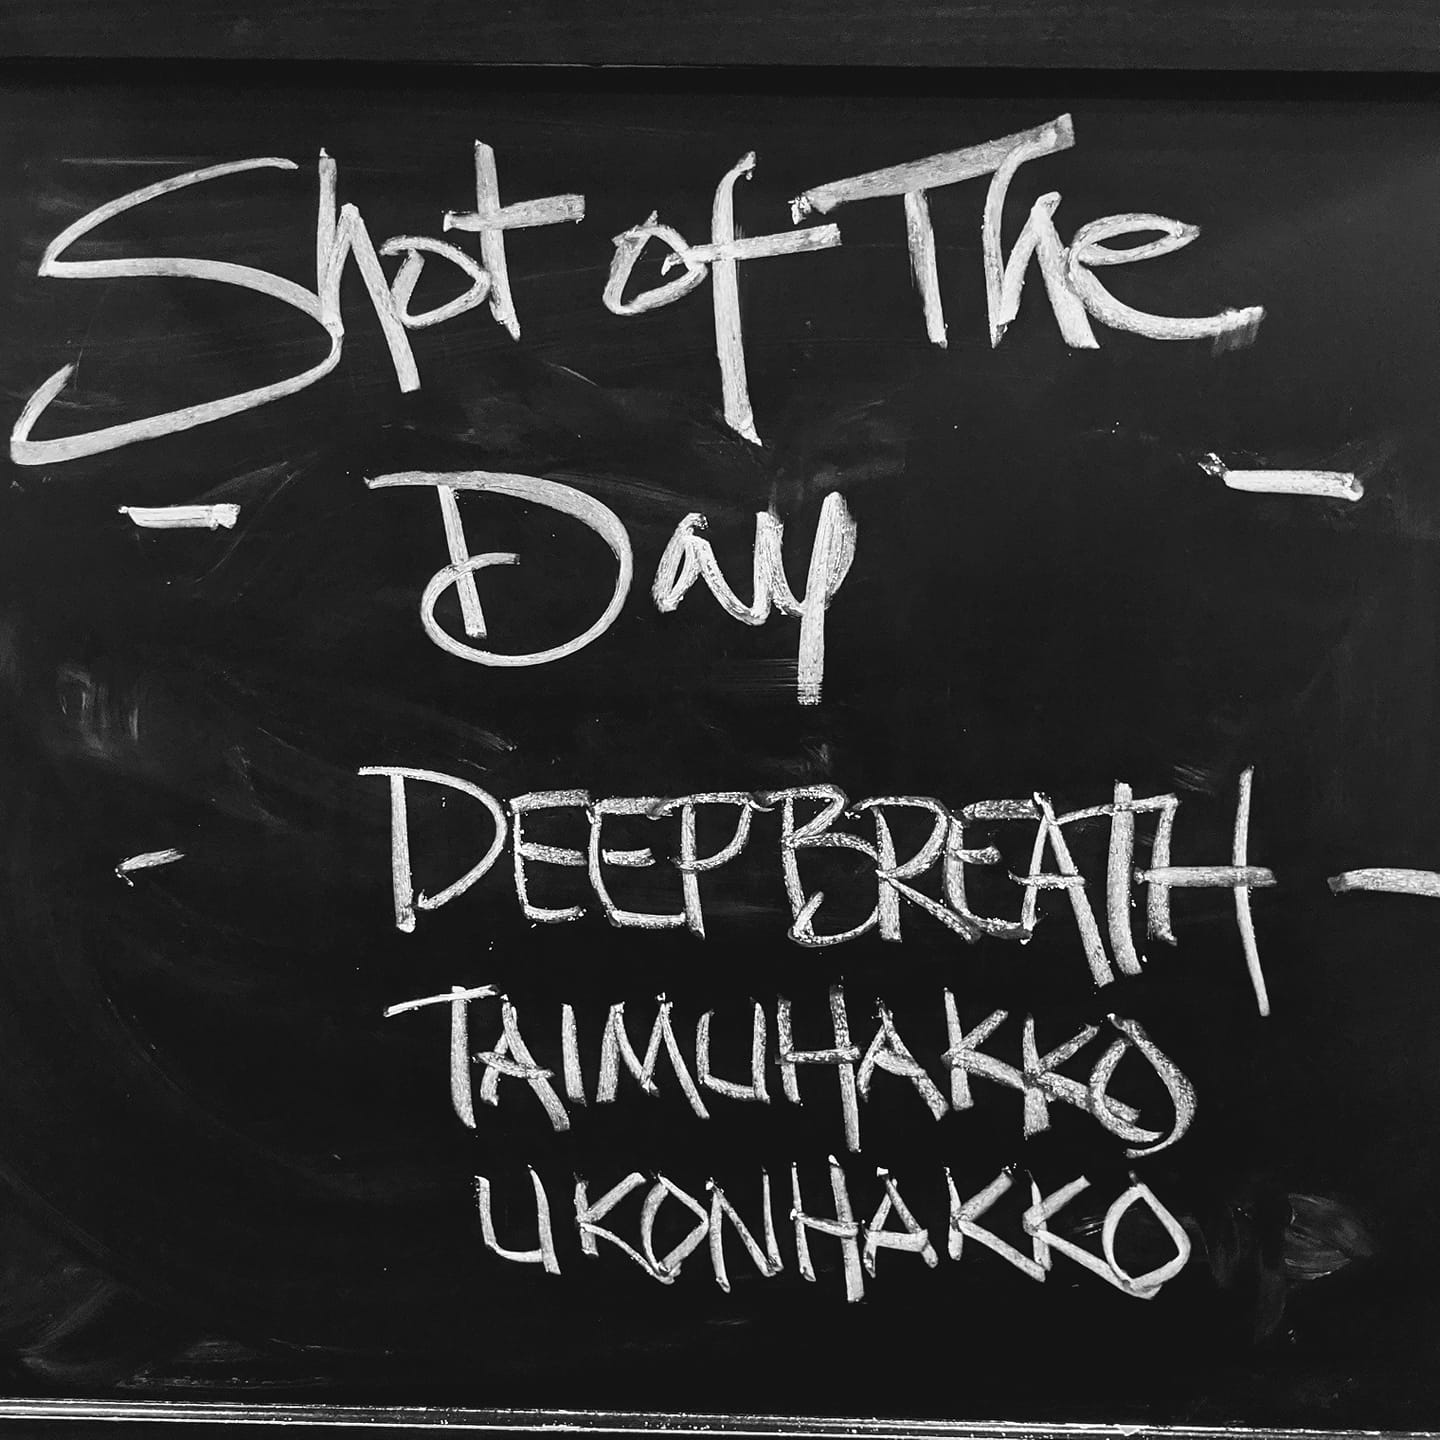 Shot of The
- Day -
- DEEPBREATH -
TAIMUHAKKO
UKONHAKKO